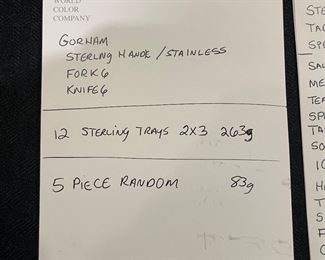 WORLD
COLOR
COMPANY
GORHAM
STERLING HANDLE / STAINLESS
FORK 6
KNIFE 6
12 STERLING TRAYS 2X3 263g
5 PIECE RANDOM 83g
STE
TAC
SPO
SAL
ME
TEA
SPR
TA
SO
IC
H
T
S
F
C